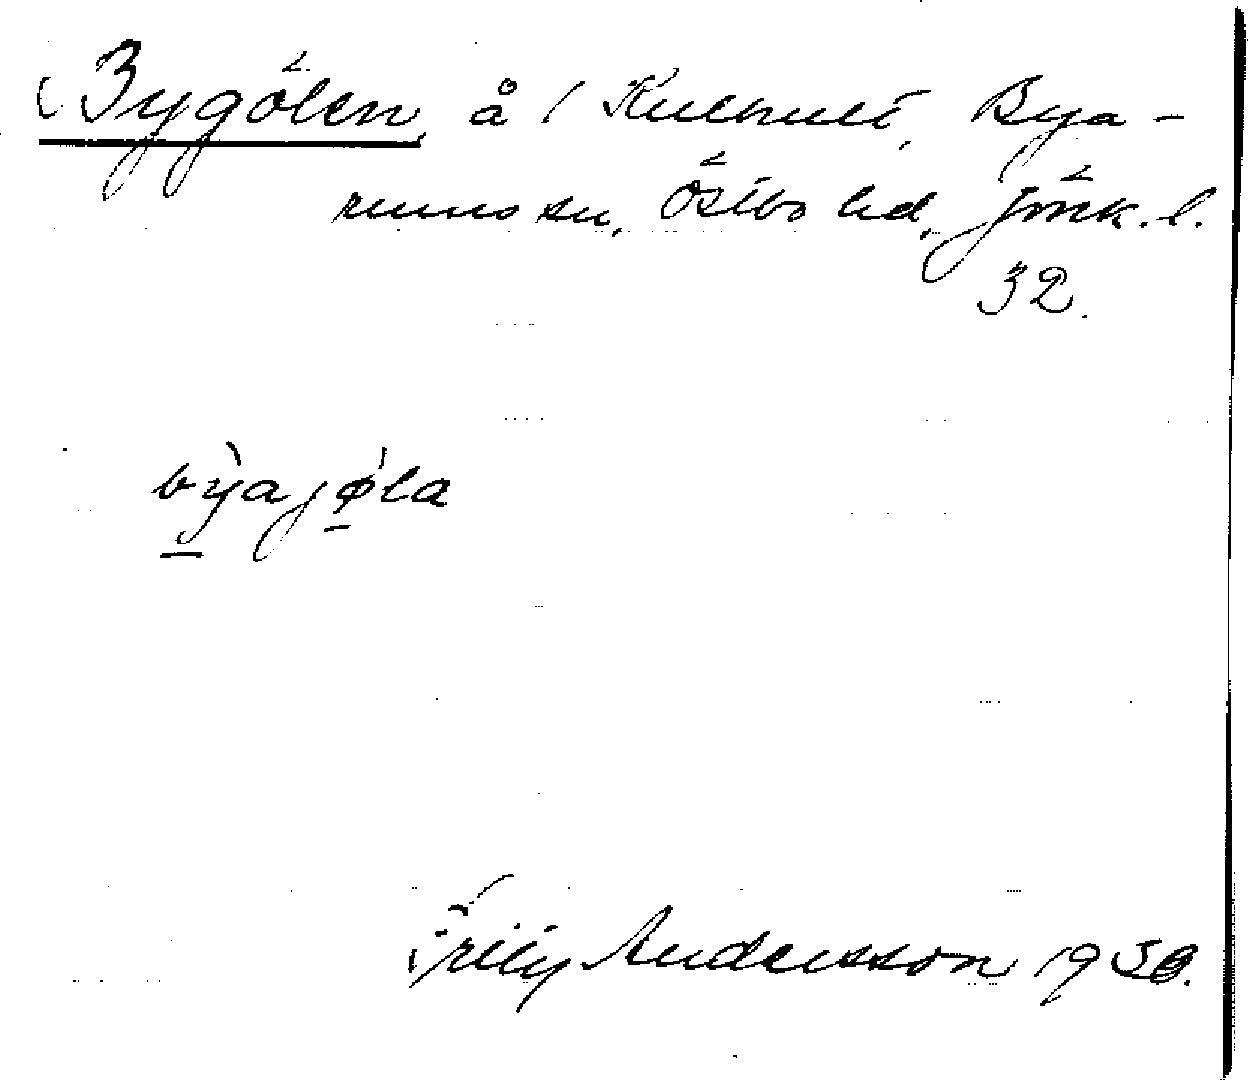 Bygölen, å / Kulhult, Bya-
rums sn, Östbo hd, Jönk. l.
32.
bỳajǿla
Frily Andersson 1930.